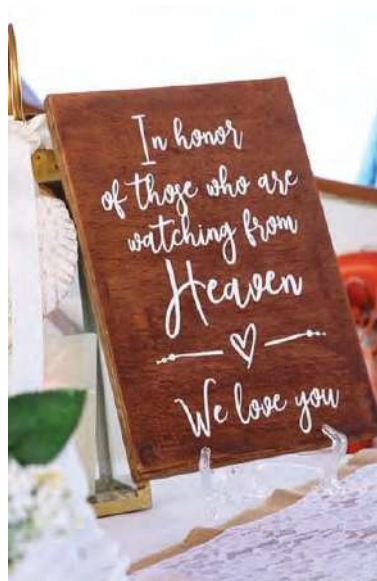 In honor
of those who are
watching from
Heaven
We love you